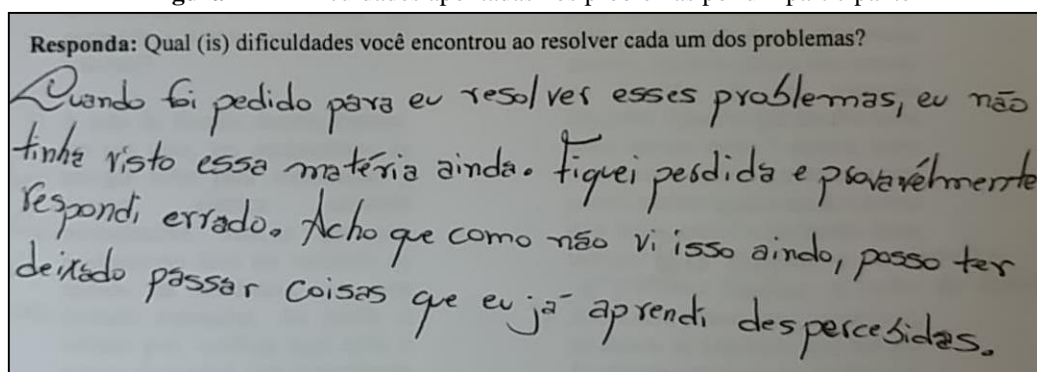 Responda: Qual (is) dificuldades você encontrou ao resolver cada um dos problemas?
Quando foi pedido para eu resolver esses problemas, eu não
tinha visto essa matéria ainda. Fiquei perdida e provavélmente
respondi errado. Acho que como não vi isso ainda, posso ter
deixado passar coisas que eu já aprendi despercebidas.